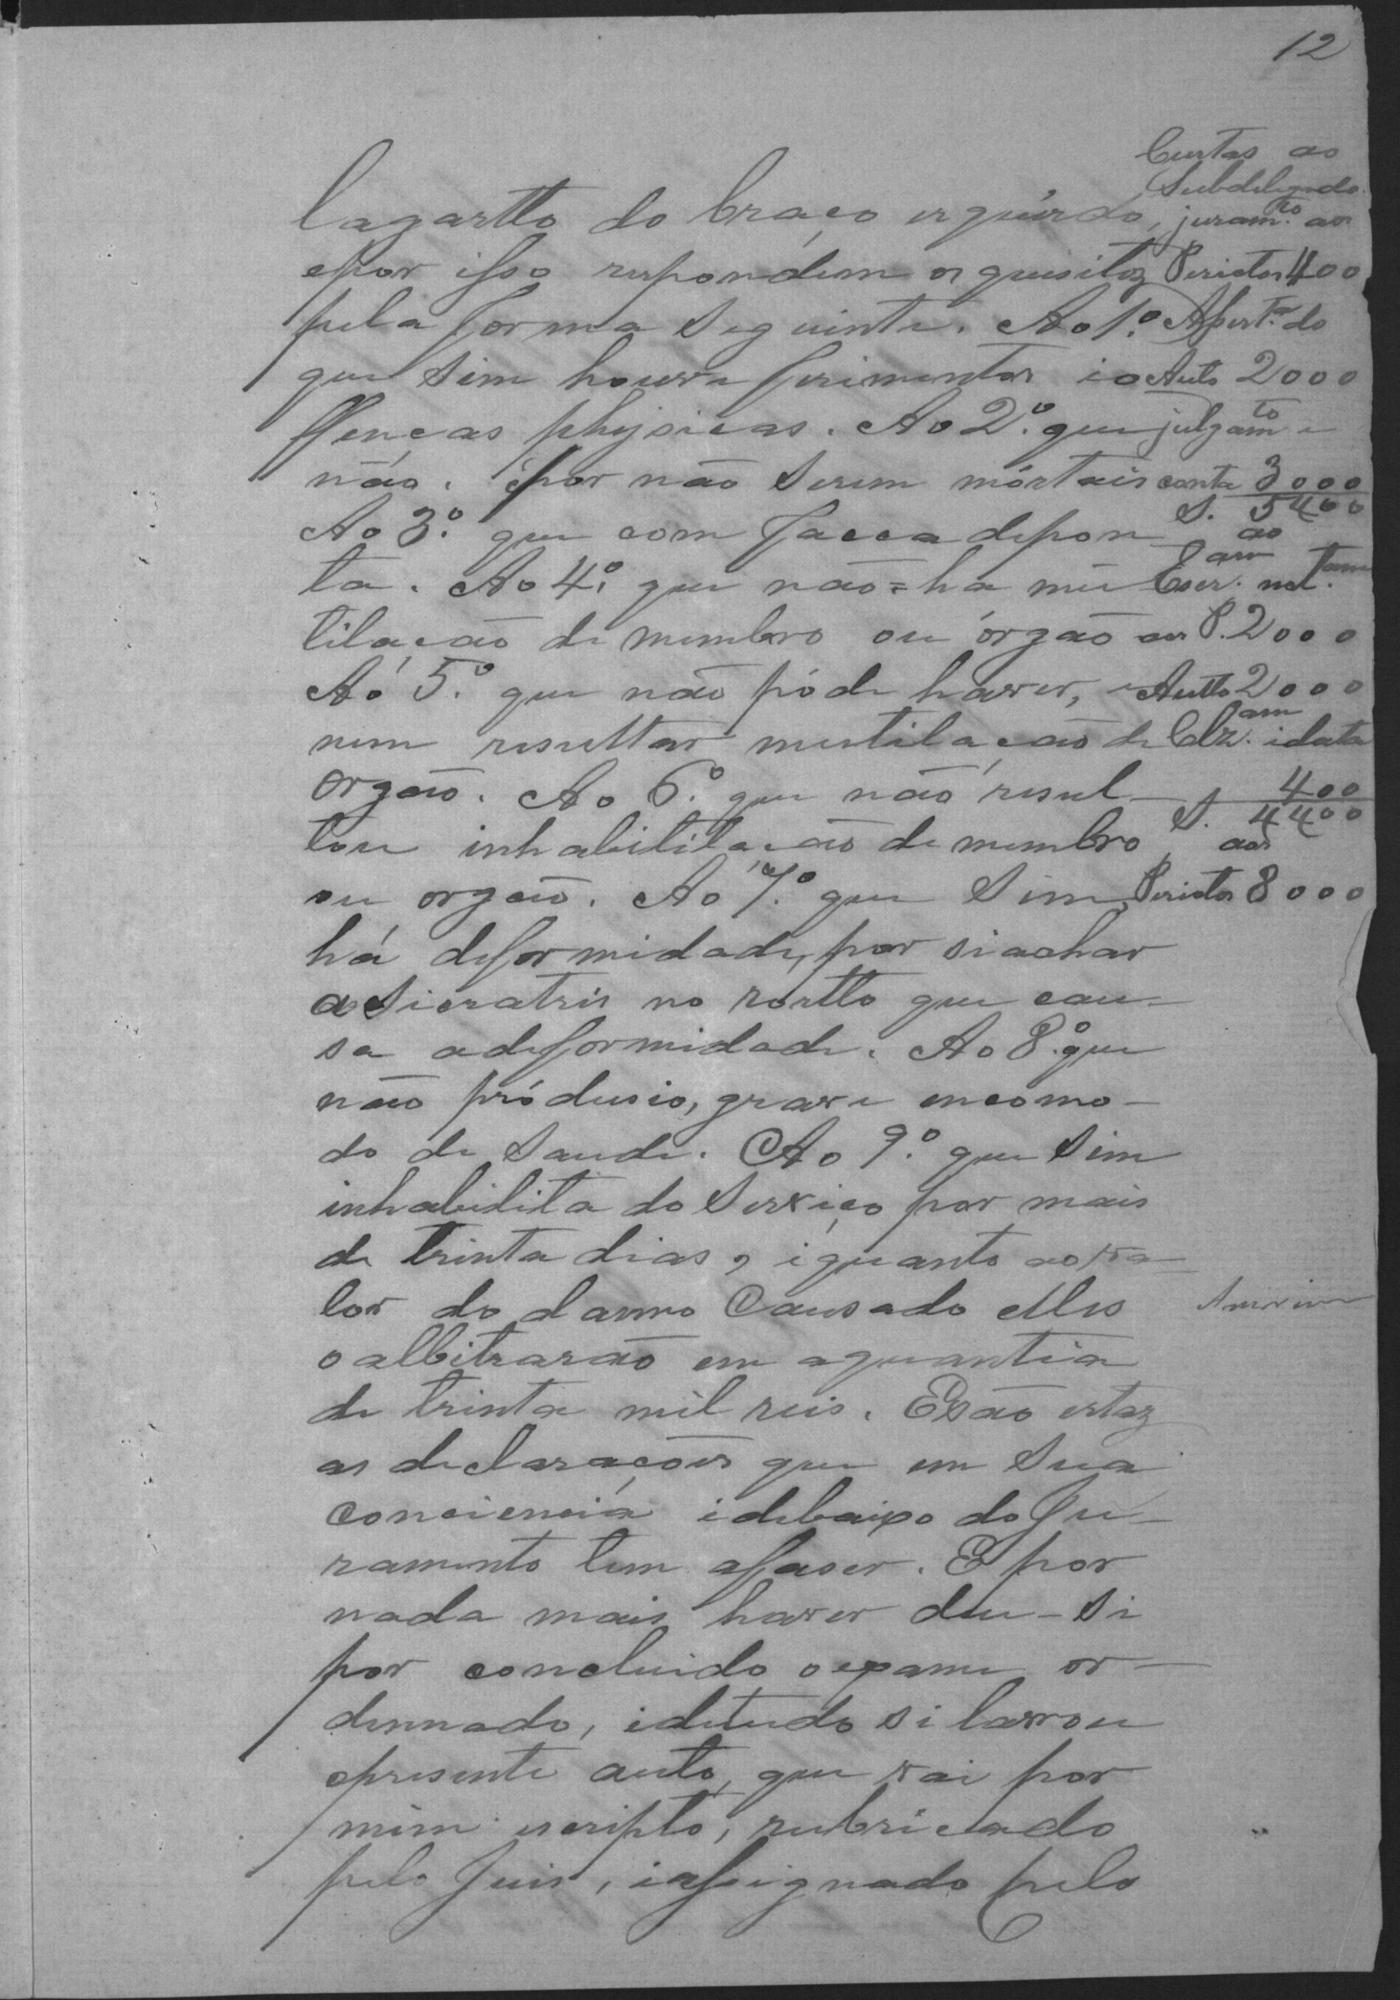 12
lagartto do braço isquérdo,
epor isso respondem os quisitoz
pela forma Seguinte. Ao 1.º
que Sim houve ferimentos i o
ffencas physicas. Ao 2.º que
não. épor não Serem mórtais
Ao 3.º que com facca depon
ta. Ao 4.º que não=ha mu
tilacão de membro ou órgão
Aó 5.º que não póde haver,
nem resulttar mutilacão de
orgão. Ao 6.º que não resul-
tou inhabilitacão de membro
ou orgão. Ao 7.º que Sim,
há deformidade, por si achar
a Sicratris no rostto que cau-
sa adeformidade. Ao 8.º que
não pródusio, grave encomo-
do de Saude. Ao 9.º que Sim
inhabilita do Serviço por mais
de trinta dias, i quanto ao va-
lor do damno Causado elles
o albitrarão em aquantia
de trinta mil reis. E são estaz
as declaraçoens que em Sua
conciencia i debaixo do Ju-
ramento tem afaser. E por
nada mais haver deu-si
por concluido o exame or-
dennado, i detudo si lavrou
opresente auto, que vai por
mim escripto, rubricado
pelo Juis, i assignado pelo
Custas ao
Subdelegado
juram.to aos
Peritos 400
Apert.ª do
Auto 2000
julgam.to e
conta 3000
S. 5400
ao
Escr.am
aos P. 2000
Autto 2000
Clz.am i data
400
S. 4400
aos
Peritos 8000
Amorim